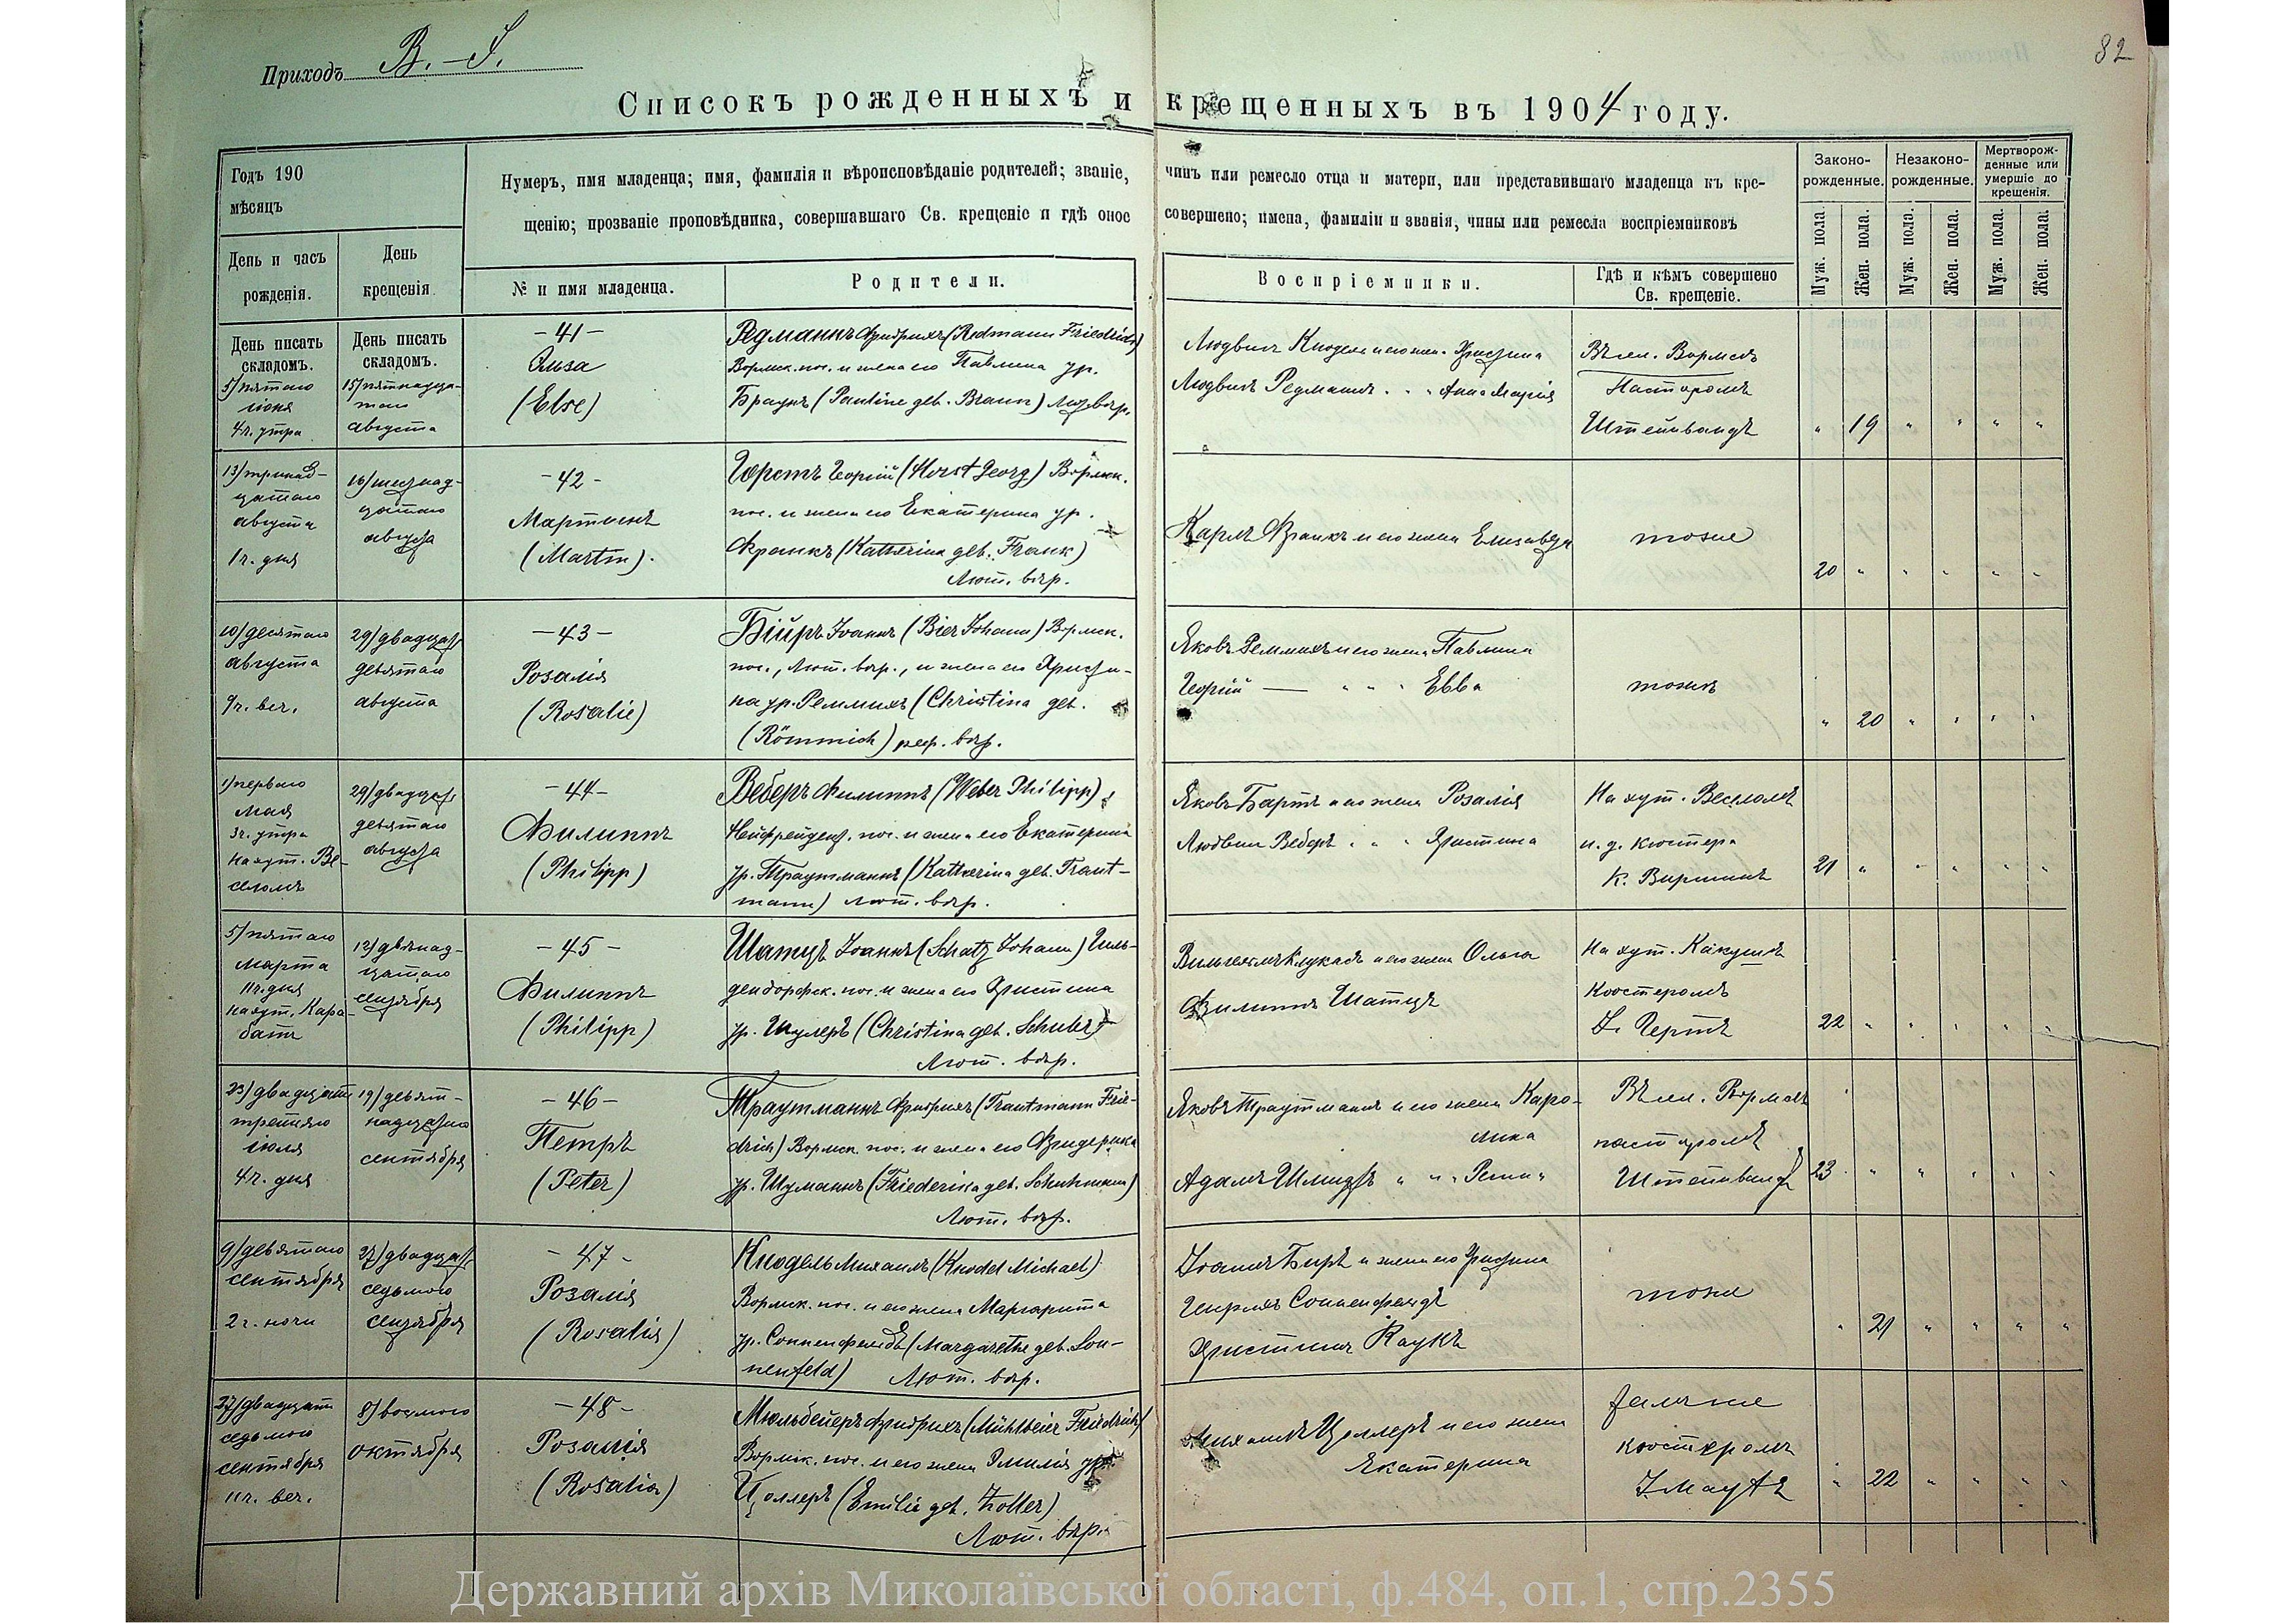 Приходъ В.-I.
82
Списокъ рожденныхъ и крещенныхъ въ 1904 году.
Годъ 190
мѣсяцъ
Нумеръ, имя младенца; имя, фамилія и вѣроисповѣданіе родителей; званіе, чинъ или ремесло отца и матери, или представившаго младенца къ кре-
щенію; прозваніе проповѣдника, совершавшаго Св. крещеніе и гдѣ оное совершено; имена, фамиліи и званія, чины или ремесла воспріемниковъ
Законо-
рожденные.
Незаконо-
рожденные.
Мертворож-
денные или
умершіе до
крещенія.
День и часъ
рожденія.
День
крещенія
№ и имя младенца.
Родители.
Воспріемники.
Гдѣ и кѣмъ совершено
Св. крещеніе.
Муж. пола.
Жен. пола.
Муж. пола.
Жен. пола.
Муж. пола.
Жен. пола.
День писать
складомъ.
5/пятаго
іюня
4 ч. утра
День писать
складомъ.
15/пятнадца-
таго
августа
-41-
Эльза
(Else)
Редманнъ Фридрихъ (Redmann Friedrich)
Вормск. пос. и жена его Павлина ур.
Браунъ (Pauline geb. Braun) Лют. вѣр.
Людвигъ Кнодель и его жена Христина
Людвигъ Редманнъ " " Анна Марія
Въ кол. Вормсъ
Пасторомъ
Штейнвандъ
" 19 " " " "
13/тринад-
цатаго
августа
1 ч. дня
16/шестнад-
цатаго
августа
-42-
Мартинъ
(Martin).
Горстъ Георгій (Horst Georg) Вормск.
пос. и жена его Екатерина ур.
Франкъ (Katherina geb. Frank)
Лют. вѣр.
Карлъ Франкъ и его жена Елизавета
тоже
20 " " " " "
10/десятаго
августа
9 ч. веч.
29/двадцат.
девятаго
августа
-43-
Розалія
(Rosalie)
Бійръ Іоаннъ (Bier Johann) Вормск.
пос., Лют. вѣр., и жена его Христи-
на ур. Реммихъ (Christina geb.
(Römmich) реф. вѣр.
Яковъ Реммихъ и его жена Павлина
Георгій — " " " Евва
тоже
" 20 " " " "
1/перваго
мая
3 ч. утра
на хут. Ве-
селомъ
29/двадцат.
девятаго
августа
-44-
Филиппъ
(Philipp)
Веберъ Филиппъ (Weber Philipp),
Нейфрейдент. пос. и жена его Екатерина
ур. Траутманнъ (Katherina geb. Traut-
mann) лют. вѣр.
Яковъ Бартъ и его жена Розалія
Людвигъ Веберъ " " " Христина
На хут. Веселомъ
и. д. кюстера
21 " " " " "
5/пятаго
марта
11 ч. дня
на хут. Кара-
батъ
12/двѣнад-
цатаго
сентября
-45-
Филиппъ
(Philipp)
Шатцъ Іоаннъ (Schatz Johann) Гиль-
дендорфск. пос. и жена его Христина
ур. Шулеръ (Christina geb. Schuler)
Лют. вѣр.
Вильгельмъ Клукасъ и его жена Ольга
Филиппъ Шатцъ
На хут.
Кюстеромъ
22 " " " " "
23/двадцать
третьяго
іюля
4 ч. дня
19/девят-
надцатаго
сентября
-46-
Петръ
(Peter)
Траутманнъ Фридрихъ (Trautmann Frie-
drich) Вормск. пос. и жена его Фридерика
ур. Шуманнъ (Friederika geb. Schuhmann)
Лют. вѣр.
Яковъ Траутманнъ и его жена Каро-
лина
Адамъ Шмидтъ " " "
Въ кол. Вормсъ
пасторомъ
Штейнвандъ
23 " " " " "
9/девятаго
сентября
2 ч. ночи
27/двадцат.
седьмого
сентября
-47-
Розалія
(Rosalia)
Кнодель Михаилъ (Knodel Michael)
Вормск. пос. и его жена Маргарита
ур. Сонненфельдъ (Margarethe geb. Son-
nenfeld) Лют. вѣр.
Іоаннъ Биръ и жена его Христина
Сонненфельдъ
Христина Раукъ
тоже
" 21 " " " "
27/двадцать
седьмого
сентября
11 ч. веч.
8/восьмого
октября
-48-
Розалія
(Rosalia)
Мюльбейеръ Фридрихъ (Mühlbeier Friedrich)
Вормск. пос. и его жена Эмилія ур.
Цоллеръ (Emilie geb. Zoller)
Лют. вѣр.
Михаилъ Цоллеръ и его жена
Екатерина
кюстеромъ
" 22 " " " "
Державний архів Миколаївської області, ф.484, оп.1, спр.2355